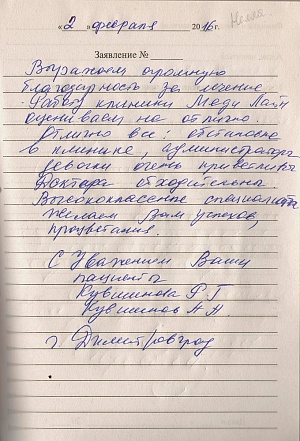 « 2 » февраля 2016 г.
Заявление №
Выражаем огромную
благодарность за лечение.
Работу клиники Меди Лайн
оцениваем на отлично.
Отлично все: обстановка
в клинике, администраторы
девочки очень приветливы
Доктора обходительны.
Высококлассные специалисты
желаем Вам успехов,
процветания.
С Уважением Ваши
пациенты
Кувшинова Р Г
Кувшинов А Н.
г. Димитровград